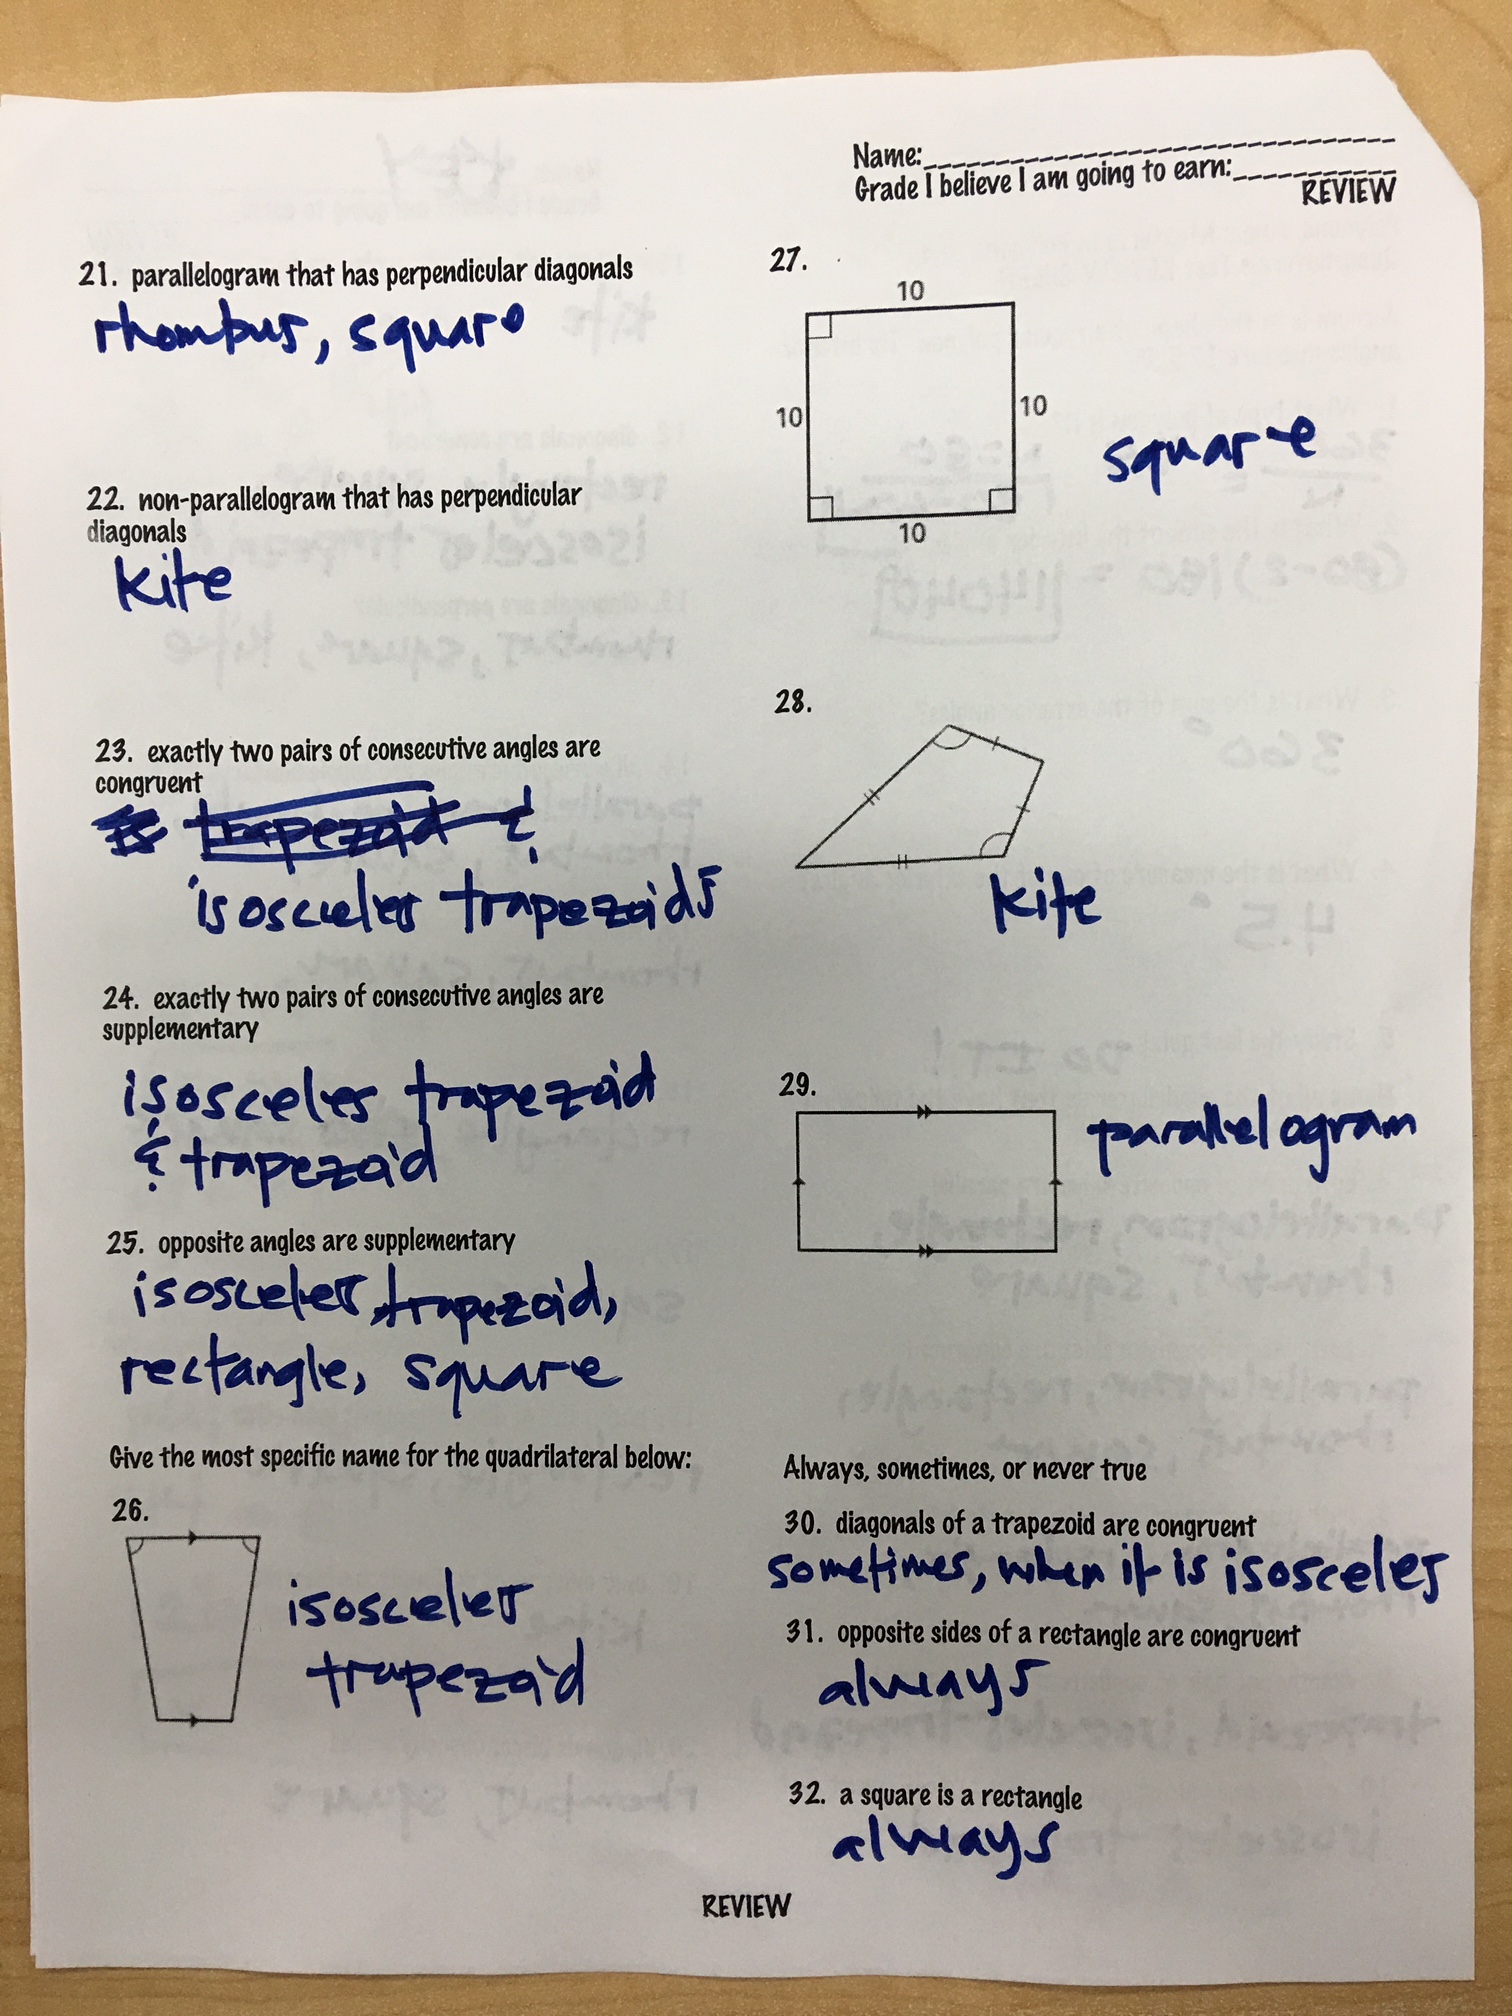 Name:
Grade I believe I am going to earn:
REVIEW
21. parallelogram that has perpendicular diagonals
rhombus, square
22. non-parallelogram that has perpendicular
diagonals
kite
23. exactly two pairs of consecutive angles are
congruent
is trapezoid &
isosceles trapezoids
24. exactly two pairs of consecutive angles are
supplementary
isosceles trapezoid
& trapezoid
25. opposite angles are supplementary
isosceles trapezoid,
rectangle, square
Give the most specific name for the quadrilateral below:
26.
isosceles
trapezoid
27.
10
10
10
10
square
28.
kite
29.
parallelogram
Always, sometimes, or never true
30. diagonals of a trapezoid are congruent
sometimes, when it is isosceles
31. opposite sides of a rectangle are congruent
always
32. a square is a rectangle
always
REVIEW